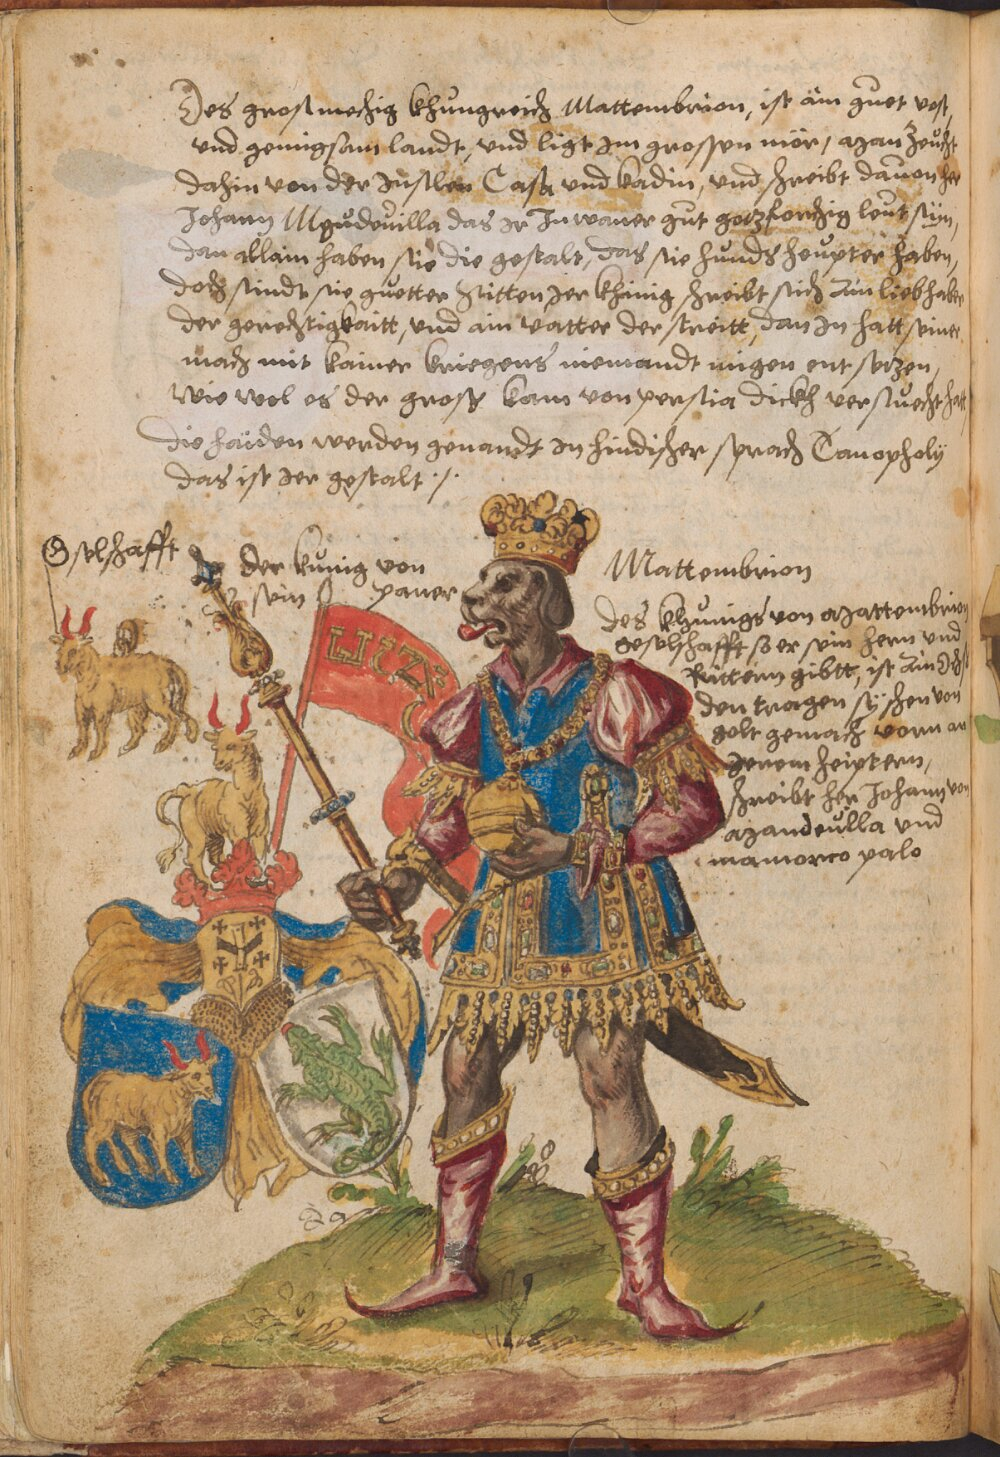 Des grosmechig khungreich Mattembrion, ist ain guet vest,
und genuegsam landt, und ligt im grossen mör, man zeucht
dahin von der Insslen Casa und kadin, und schreibt davon her
Johann Mgudevilla das ir Inwaner gut gotzforchig leut syn,
dan allain haben sie die gestalt, das sie hunds heupter haben,
doch sindt sie guetter sitten, Der khinig schreibt sich ain liebhaber
der gerechtigkaitt, und ain vatter der streitt, dan In hatt seiner
mach mit kainer kriegens niemandt migen ent setzen,
wie wol es der gross kam von persia dickh versuecht hatt
die haiden werden genandt in hindischer sprach Canopholy
das ist der gestalt ./.
Gselschafft
der kunig von
sein paner
Mattembrion
des khunigs von Mattembrion
geselschafft so er sein hern und
Rittern gibtt, ist ain Ochs
den tragen sy schen von
golt gemach vorn an
Irenn heiptern,
schreibt her Johann von
Mandeuilla und
mamorco polo